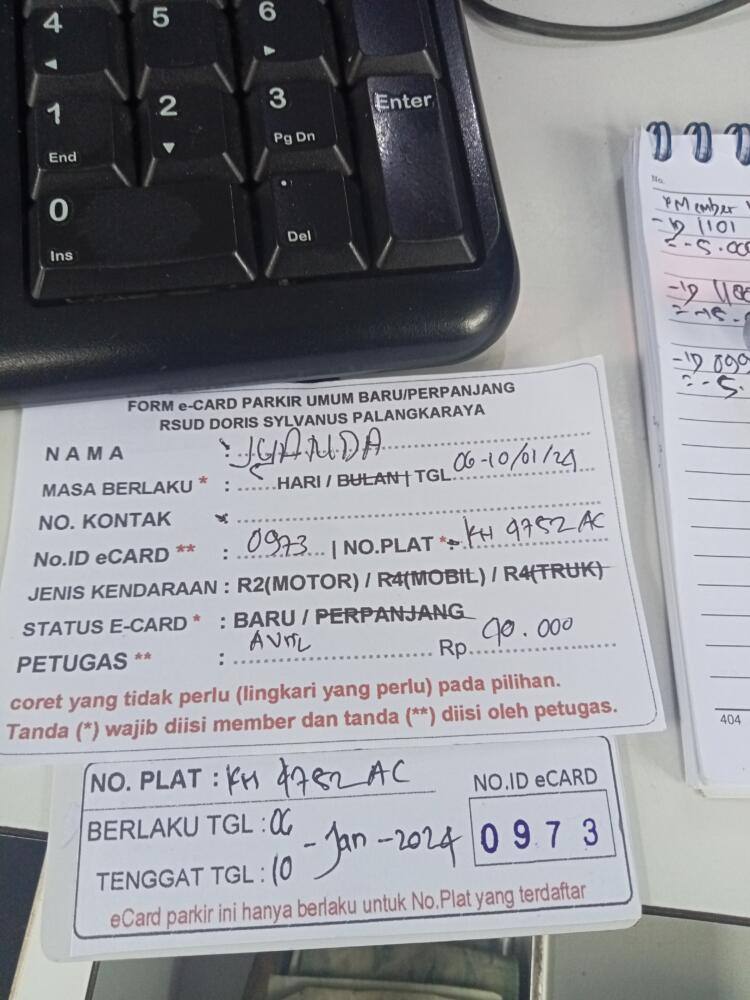 4 5 6
1 2 3 Enter
End Pg Dn
0 .
Ins Del
No.
Member
- ID 1101
= -5.000
- ID 1100
= -15.
- ID 099
= -5.
404
FORM e-CARD PARKIR UMUM BARU/PERPANJANG
RSUD DORIS SYLVANUS PALANGKARAYA
NAMA : JUANDA
MASA BERLAKU * : 5 HARI / BULAN | TGL 06-10/01/24
NO. KONTAK :
No.ID eCARD ** : 0973 | NO.PLAT * : KH 4782 AC
JENIS KENDARAAN : R2(MOTOR) / R4(MOBIL) / R4(TRUK)
STATUS E-CARD * : BARU / PERPANJANG
PETUGAS ** : Rp. 90.000
coret yang tidak perlu (lingkari yang perlu) pada pilihan.
Tanda (*) wajib diisi member dan tanda (**) diisi oleh petugas.
NO. PLAT : KH 4782 AC
NO.ID eCARD
0973
BERLAKU TGL : 06 - Jan - 2024
TENGGAT TGL : 10
eCard parkir ini hanya berlaku untuk No.Plat yang terdaftar